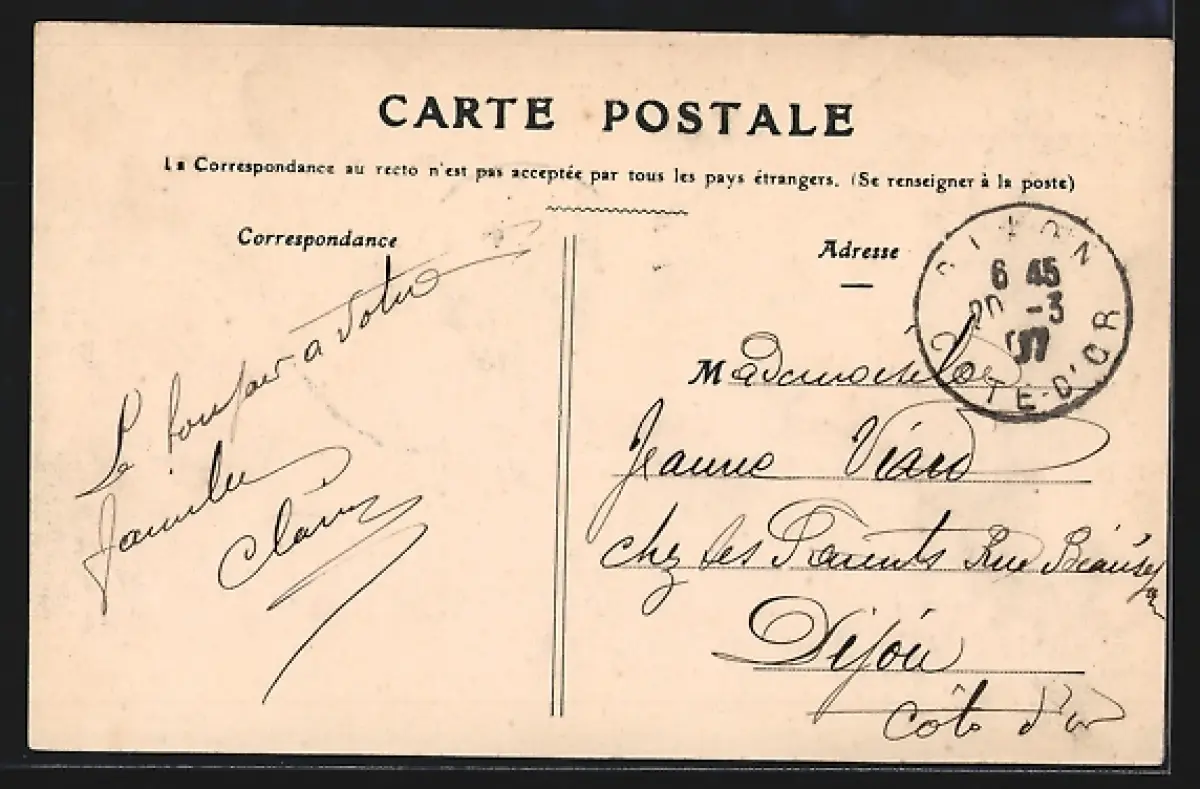 CARTE POSTALE
La Correspondance au recto n'est pas acceptée par tous les pays étrangers. (Se renseigner à la poste)
Correspondance
Le bonjour a votre
famille
Claire
Adresse
DIJON
6 45
20 -3
07
TE-D'OR
Mademoiselle
Jeanne Viard
chez ses Parents Rue
Dijon
Côte d'or